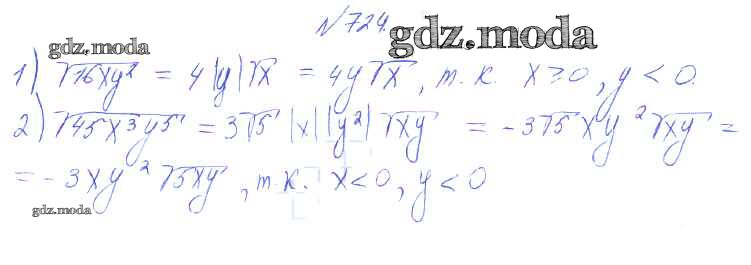 № 724.
gdz.moda
gdz.moda
1) √16xy² = 4|y|√x = 4y√x, т.к. x ≥ 0, y < 0.
2) √45x³y⁵ = 3√5 |x||y²|√xy = -3√5 xy²√xy =
= -3xy²√5xy, т.к. x<0, y<0
gdz.moda